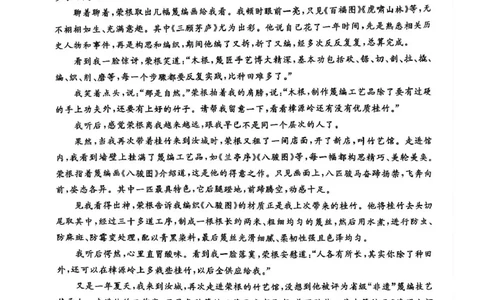 聊着聊着,荣根取出几幅篾编画给我看。我顿时眼前一亮,只见《百福图》《虎啸山林》等,无
不栩栩如生、充满意趣。其中《三顾茅庐》尤为出彩。他说自己花了一年时间,先是熟悉相关历
史人物和事件,再是构思和编织,期间他编了又拆,拆了又编,经多次反反复复,总算完成。
看到我一脸惊讶,荣根笑道:“木根,篾匠手艺博大精深,基本功包括砍、锯、切、剖、拉、撬、
编、织、削、磨等,每一个步骤都要反复实践,比种田难多了。”
我笑着点头,说:“那是自然。”荣根拍着我的肩膀,说:“木根,制作篾编工艺品除了要有过硬
的手上功夫外,还要有上好的竹子。请帮我留意一下,看看樟源岭还有没有优质桂竹。”
我听后,感觉荣根离我越来越远,跟我早已不是同一个层次的人了。
果然,当我再次带着桂竹来到汝城时,荣根又租了一间店面,开了新店,叫竹艺馆。走进馆
内,我看到墙壁上挂满了篾编工艺品,如《兰亭序》《八骏图》等,每一幅都构思精巧、美轮美奂。
荣根指着篾编画《八骏图》介绍道,这是他的得意之作。只见画面上,八匹骏马奋蹄扬鬃,飞奔向
前,姿态各异。其中一匹最具特色,它后腿蹬地,前蹄腾空,动感十足。
见我看得出神,荣根告诉我编织《八骏图》的材质正是我上次带来的桂竹。他将桂竹去头切
尾取其中,经过三十多道工序,制成一根根长约两米、粗细均匀的篾丝,然后用水煮,进行防虫、
防麻斑、防霉变处理,配以青黑染料,最后篾丝光滑细腻、柔韧性强且色泽均匀。
我听后愕然,心里直冒酸味。看到我一脸落寞,荣根安慰道:“人各有所长,其实你除了种田
外,还可以在樟源岭上多栽些桂竹,以后全供应给我。”
又是一年夏天,我来到汝城,再次走进荣根的竹艺馆,没想到他被评为省级“非遗”篾编技艺